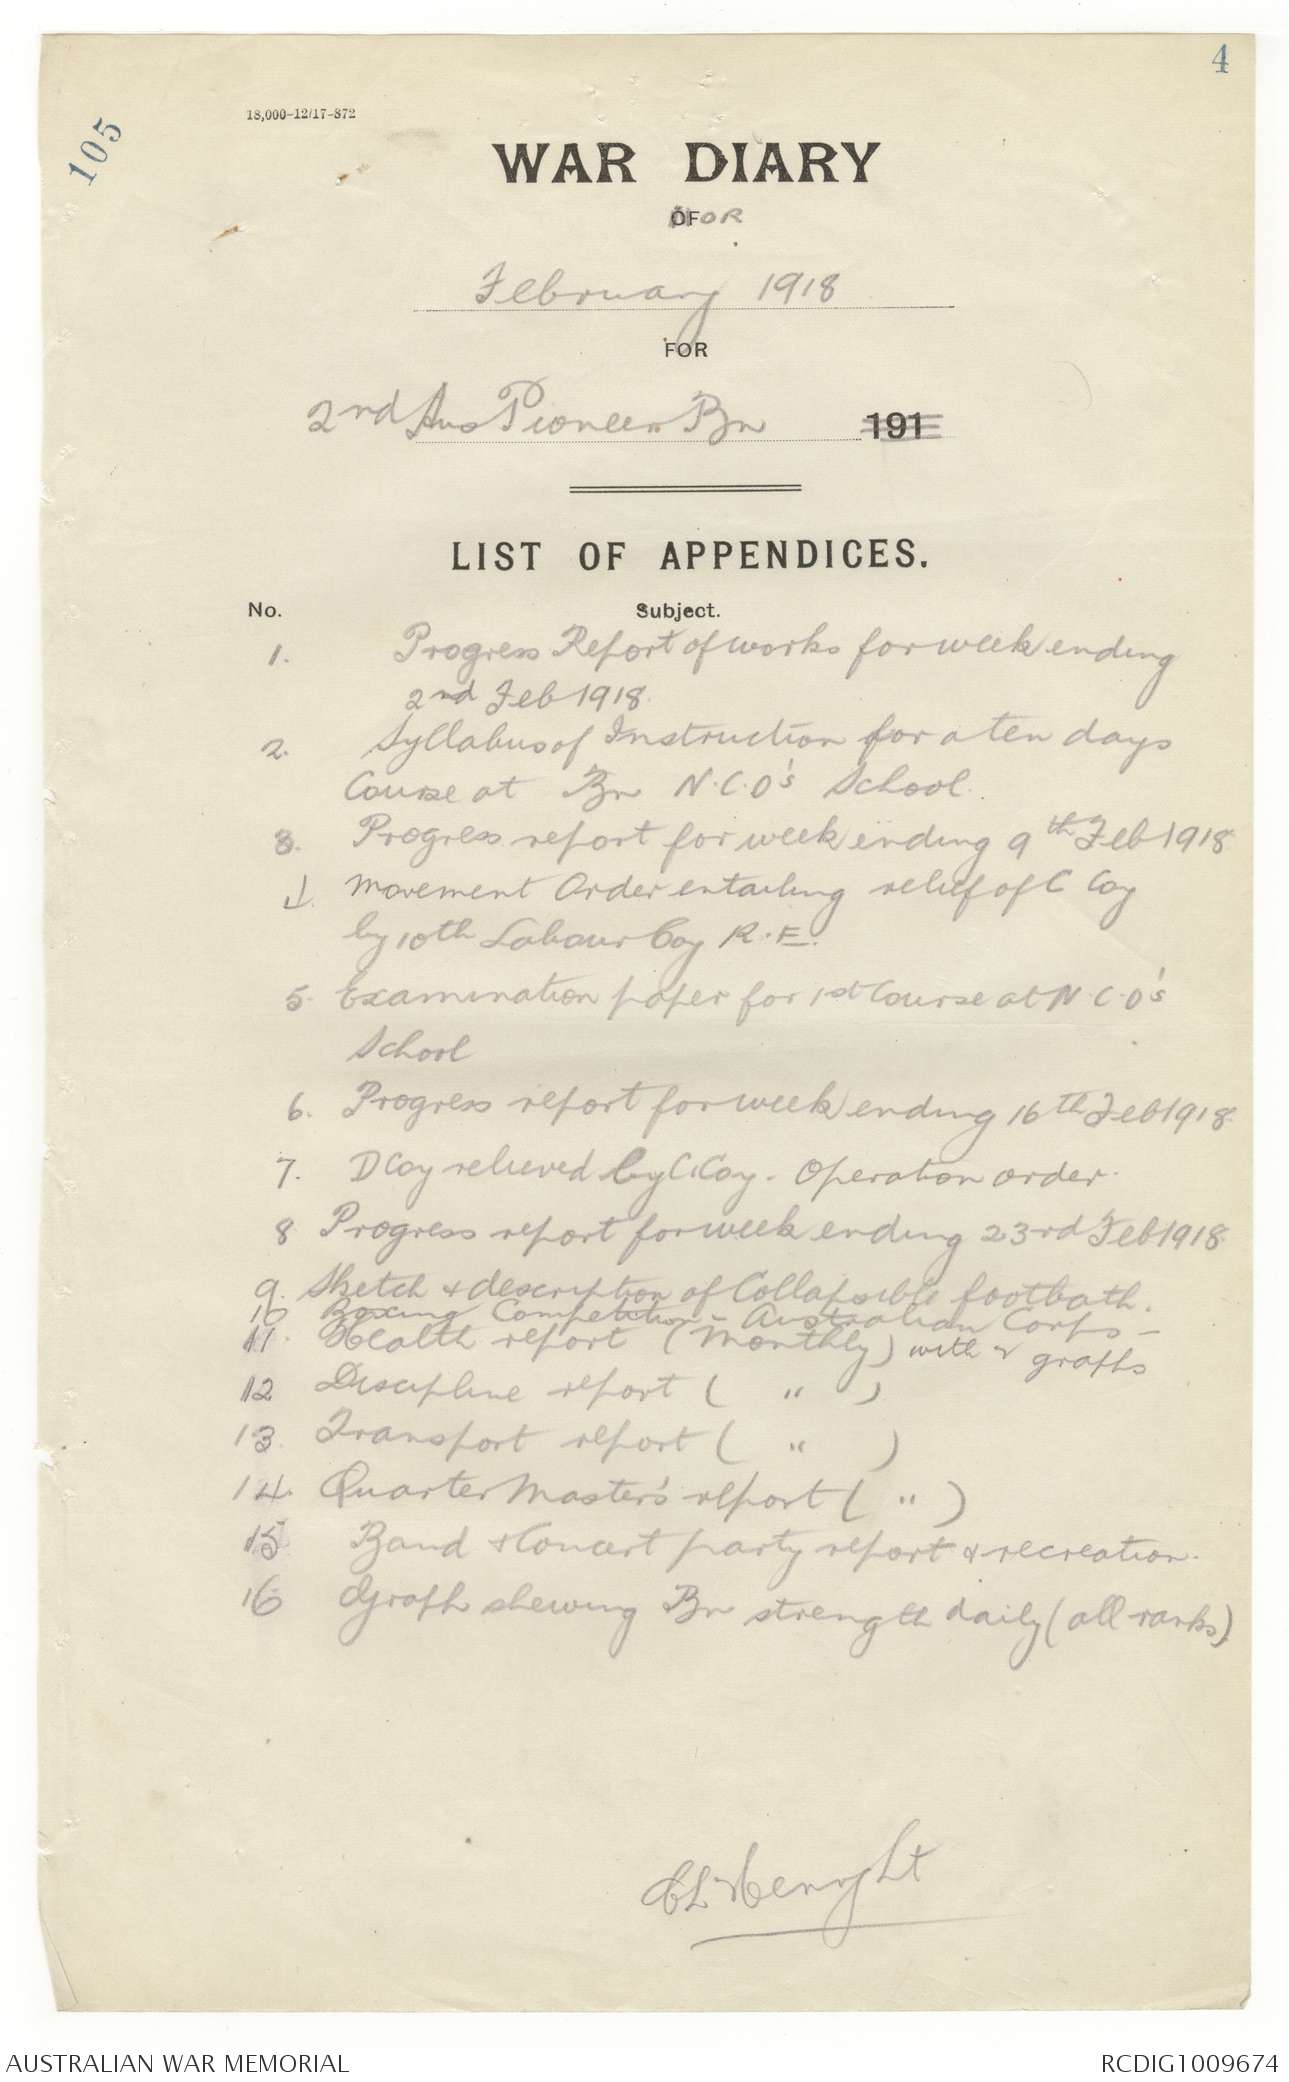 4
105
18,000-12/17-872
WAR DIARY
OF FOR
February 1918
FOR
2nd Aus Pioneer Bn 191
LIST OF APPENDICES.
No. Subject.
1. Progress Report of works for week ending
2nd Feb 1918.
2. Syllabus of Instruction for a ten days
Course at Bn N.C.O's School.
3. Progress report for week ending 9th Feb 1918
4. Movement Order entailing relief of C Coy
by 10th Labour Coy R.E.
5. Examination paper for 1st Course at N.C.O's
School
6. Progress report for week ending 16th Feb 1918.
7. D Coy relieved by C. Coy - Operation order.
8 Progress report for week ending 23rd Feb 1918.
9. Sketch & description of Collapsible footbath.
10 Boxing Competition - Australian Corps -
11. Health report (Monthly) with 2 graphs
12 Discipline report ( " )
13. Transport report ( " )
14. Quarter Master's report ( " )
15 Band & Concert party report & recreation.
16 Graph shewing Bn strength daily (all ranks)
Lt
AUSTRALIAN WAR MEMORIAL RCDIG1009674